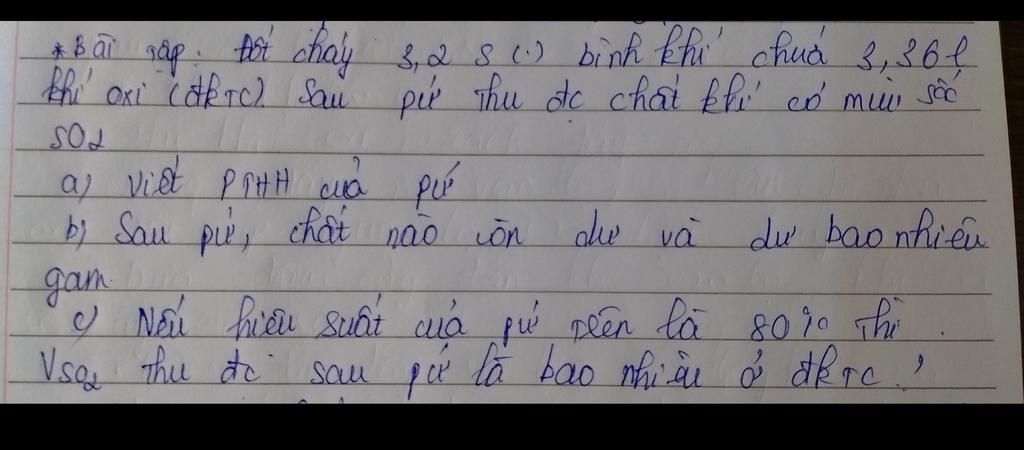 * Bài tập. Đốt cháy 3,2 S (.) bình khí chuá 3,36 l
khí oxi (đkTC) Sau pứ Thu đc chất khí có mùi sốc
SO2
a) Viết PTHH của pứ
b) Sau pứ, chất nào còn dư và dư bao nhiêu
gam.
c) Nếu hiêu suất của pứ trên là 80% Thì.
VSO2 Thu đc sau pứ là bao nhiêu ở đkTC.?